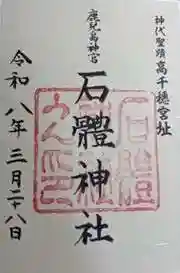 神代聖蹟 高千穂宮址
鹿児島神宮
石體神社
令和八年三月二十八日